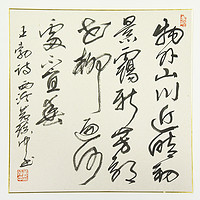 物外山川近晴初
景靄新芳郊
花柳遍何
處不宜春
王勃詩